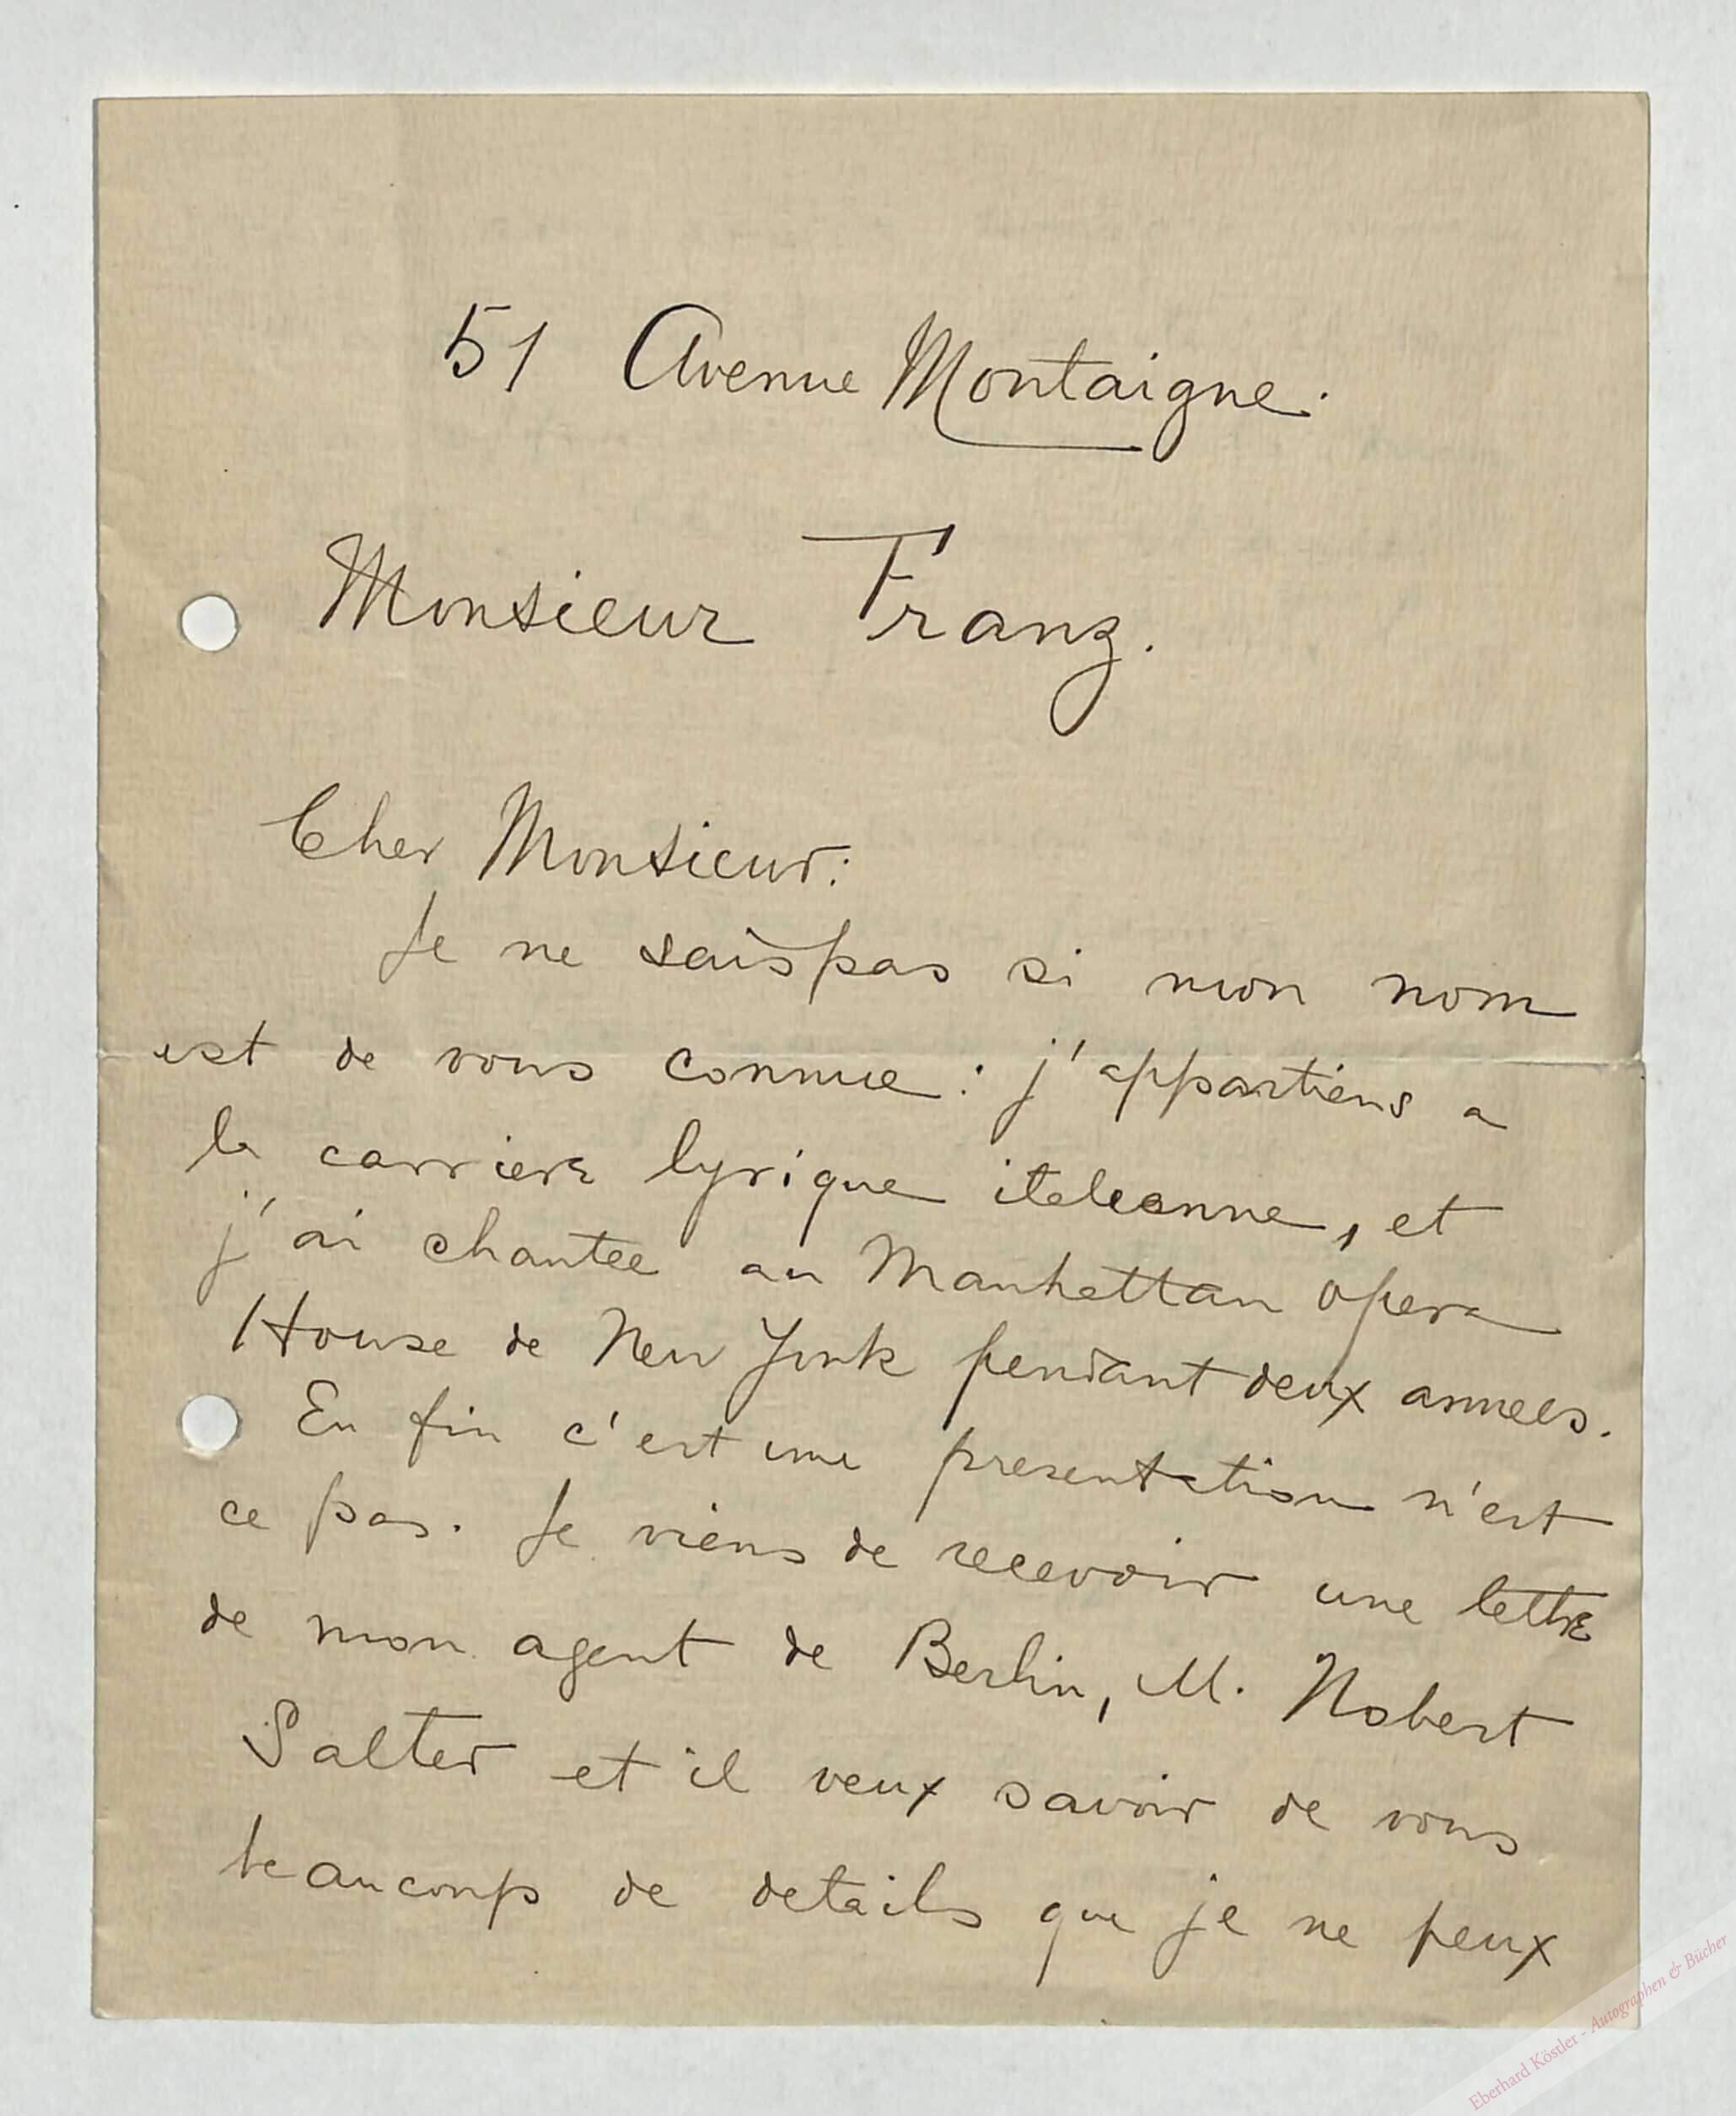 51 Avenue Montaigne.
Monsieur Franz.
Cher Monsieur:
Je ne sais pas si mon nom
est de vous connue: j'appartiens a
la carriere lyrique italeanne, et
j'ai chantee au Manhattan Opera
House de New York pendant deux annees.
En fin c'est une presentation n'est
ce pas. Je viens de recevoir une lettre
de mon agent de Berlin, M. Nobert
Salter et il veux savoir de vous
beaucoup de details que je ne peux
Eberhard Köstler - Autographen & Bücher